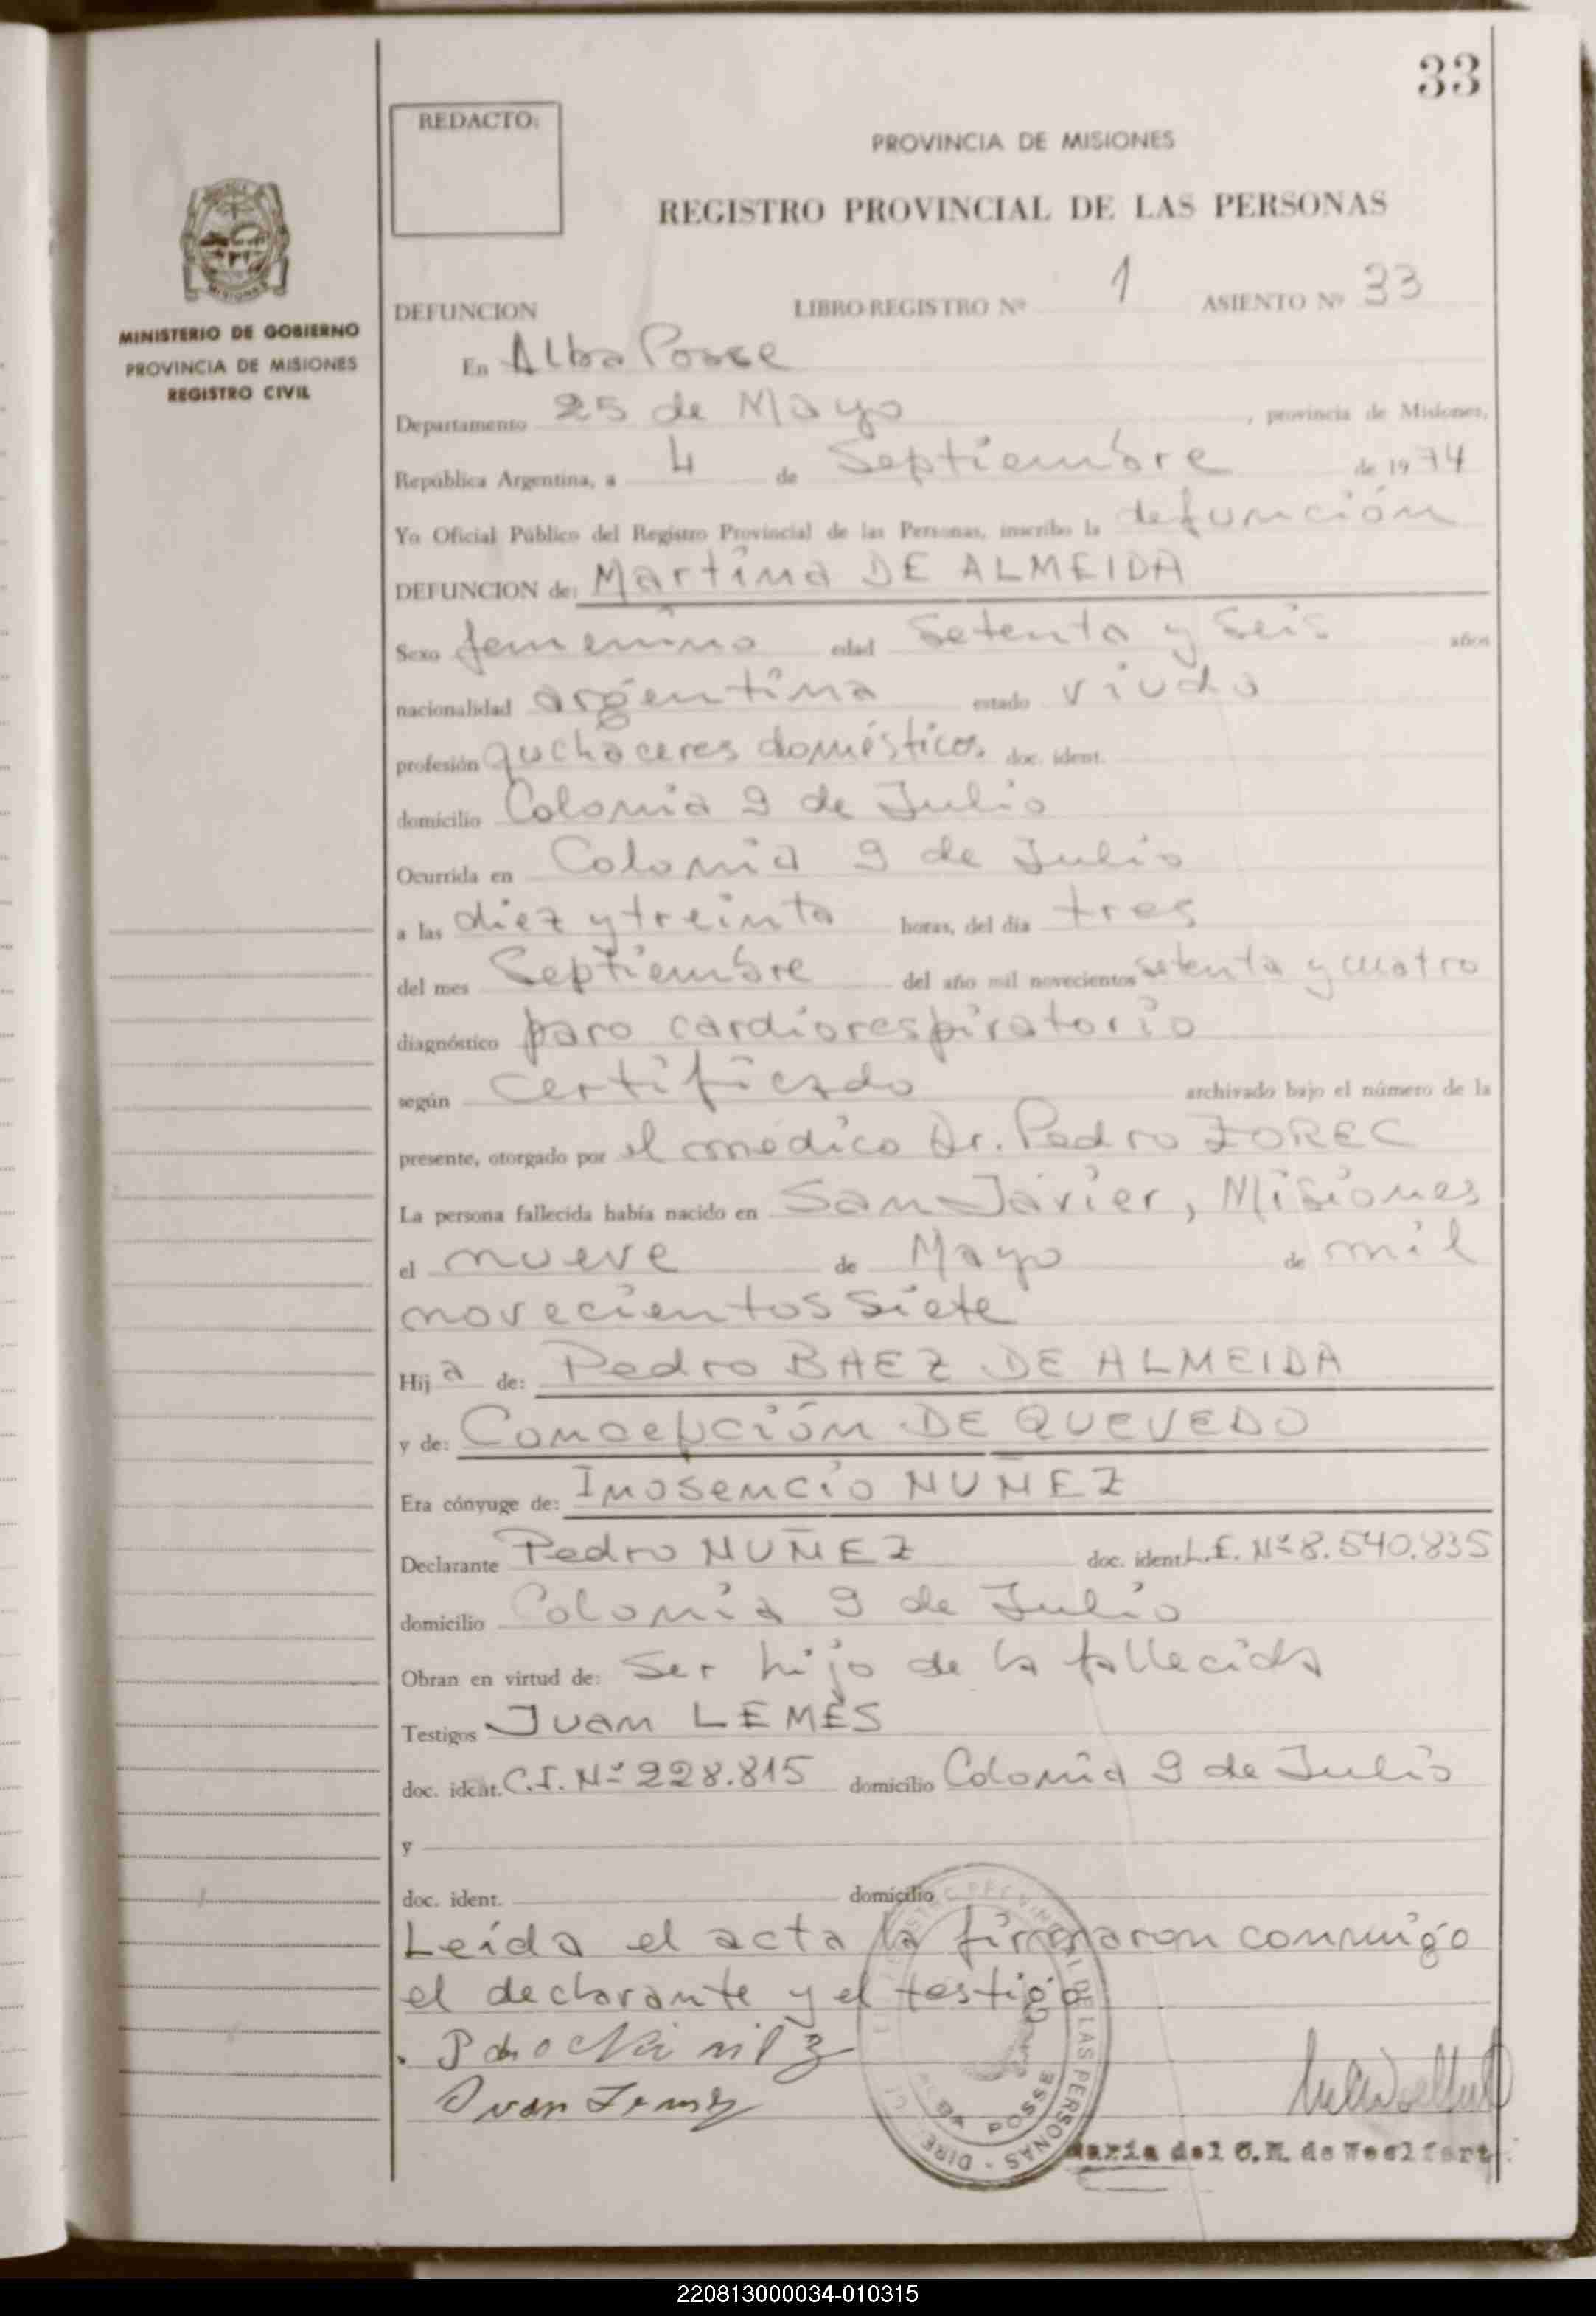 33
REDACTO:
PROVINCIA DE MISIONES
REGISTRO PROVINCIAL DE LAS PERSONAS
MISIONES
MINISTERIO DE GOBIERNO
PROVINCIA DE MISIONES
REGISTRO CIVIL
DEFUNCION LIBRO-REGISTRO Nº 1 ASIENTO Nº 33
En Alba Posse
Departamento 25 de Mayo, provincia de Misiones,
República Argentina, a 4 de Septiembre de 1974
Yo Oficial Público del Registro Provincial de las Personas, inscribo la defunción
DEFUNCION de: Martina DE ALMEIDA
Sexo femenino edad Setenta y Seis años
nacionalidad argentina estado viuda
profesión quehaceres domésticos doc. ident.
domicilio Colonia 9 de Julio
Ocurrida en Colonia 9 de Julio
a las diez y treinta horas, del día tres
del mes Septiembre del año mil novecientos setenta y cuatro
diagnóstico paro cardiorespiratorio
según certificado archivado bajo el número de la
presente, otorgado por el médico Dr. Pedro ZOREC
La persona fallecida había nacido en San Javier, Misiones
el nueve de Mayo de mil
novecientos siete
Hija de: Pedro BAEZ DE ALMEIDA
y de: Concepción DE QUEVEDO
Era cónyuge de: Inosencio NUÑEZ
Declarante Pedro NUÑEZ doc. ident. L.E. Nº 8.540.835
domicilio Colonia 9 de Julio
Obran en virtud de: Ser hijo de la fallecida
Testigos Juan LEMES
doc. ident. C.I. Nº 228.815 domicilio Colonia 9 de Julio
y
doc. ident. domicilio
Leída el acta la firmaron conmigo
el declarante y el testigo
Juan Lemes
DE LAS PERSONAS - DIRE
ALBA POSSE
María del C.M. de Woelfert
220813000034-010315